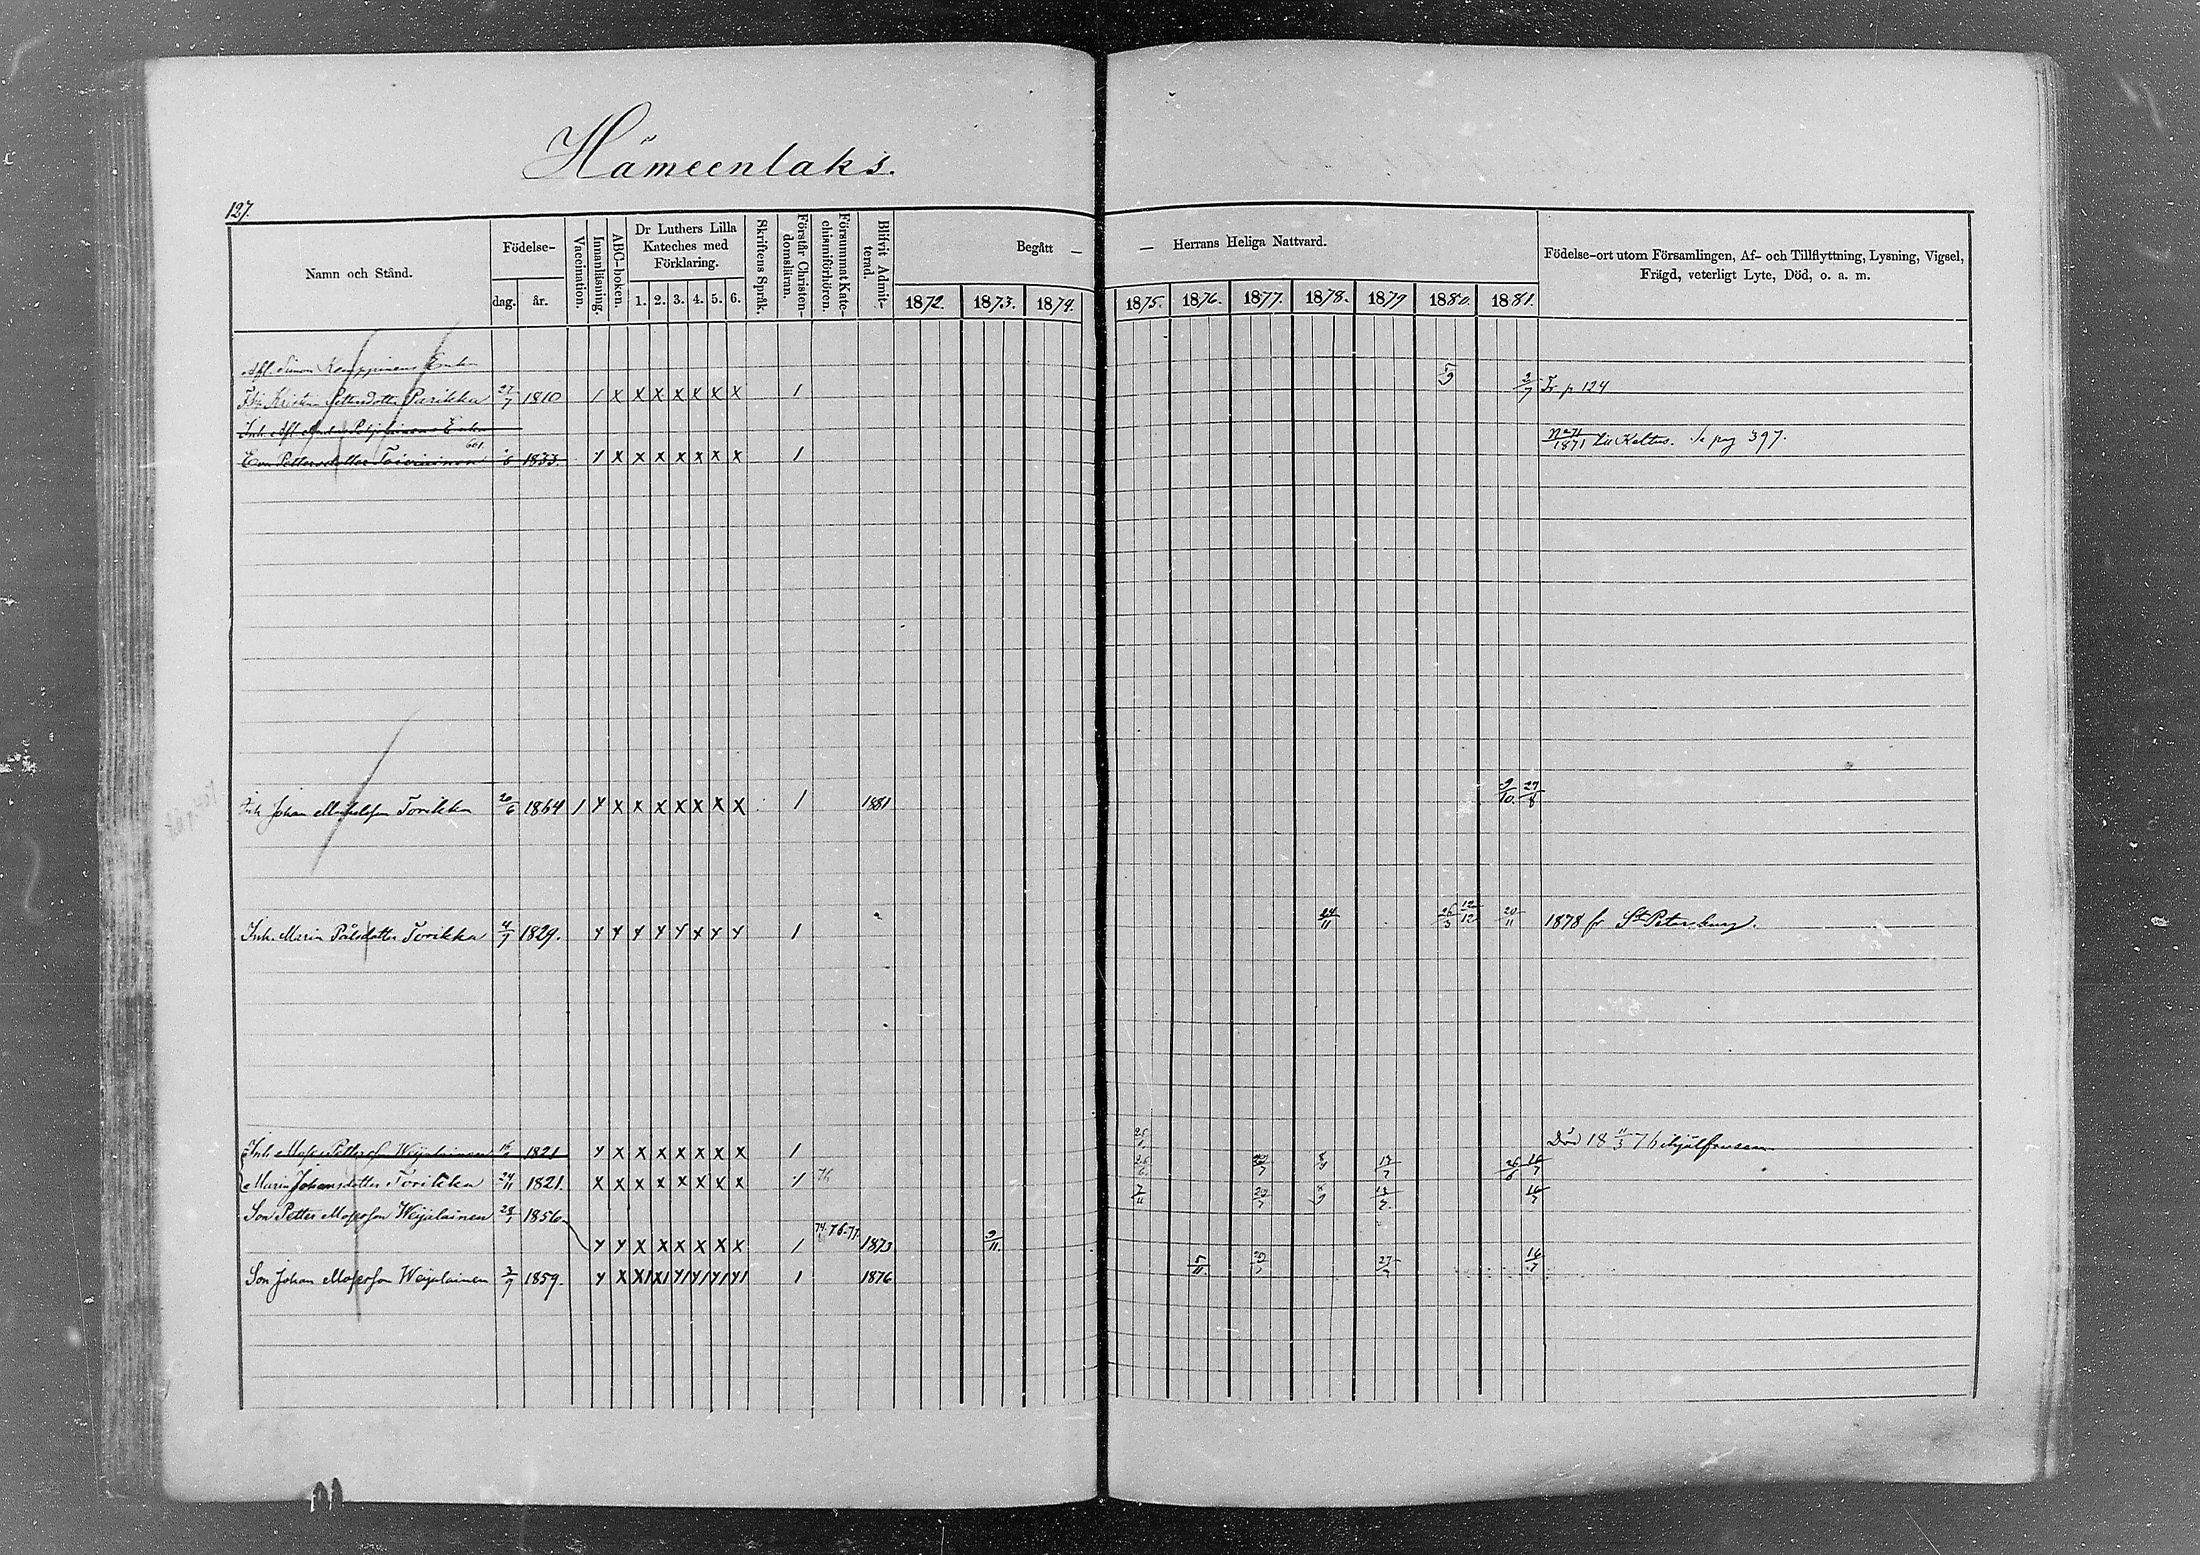 Hämeenlaks.
127.
Namn och Stånd.
Födelse-
dag. år.
Vaccination.
Innanläsning.
ABC-boken.
Dr Luthers Lilla
Kateches med
Förklaring.
1. 2. 3. 4. 5. 6.
Skriftens Språk.
Förstår Christen-
domsläran.
Försummat Kate-
chismiförhören.
Blifvit Admit-
terad.
Begått —
— Herrans Heliga Nattvard.
1872. 1873. 1874. 1875. 1876. 1877. 1878. 1879 1880. 1881.
Födelse-ort utom Församlingen, Af- och Tillflyttning, Lysning, Vigsel,
Frägd, veterligt Lyte, Död, o. a. m.
Afl. Simon Kemppinens Enka
Kristin Pettersdotter Parikka 27/7 1810 / x x x x x x x 1 2/7 Fr p 124
Inh. Afl. Enka
601.
Eva Pettersdotter Toiviainen 1833. y x x x x x x x 1 1871 till Keltus. Se pag 397.
Inh Johan Mickelsson Torikka 20/6 1864 1 y x x x x x x x 1 1881 9/10. 27/8
Inh. Maria Pålsdotter Torikka 4/9 1829. y y y y y x y y 1 24/11 26/3 12/12 20/11 1878 fr St Petersburg.
Inh. Moses Petterson Weijalainen 1821 y x x x x x x x 1 Död 18 11/3 76
Maria Johansdotter Torikka 24/11 1821. x x x x x x x x 1 76 26/6 16/7
Son Petter Moseson Weijalainen 28/1 1856. 7/11 16/7
y y x x x x x x 1 74. 76. 77. 1873 9/11.
Son Johan Moseson Weijalainen 3/9 1859. y x x1 x1 y1 y1 y1 y1 1 1876 5/11. 16/7